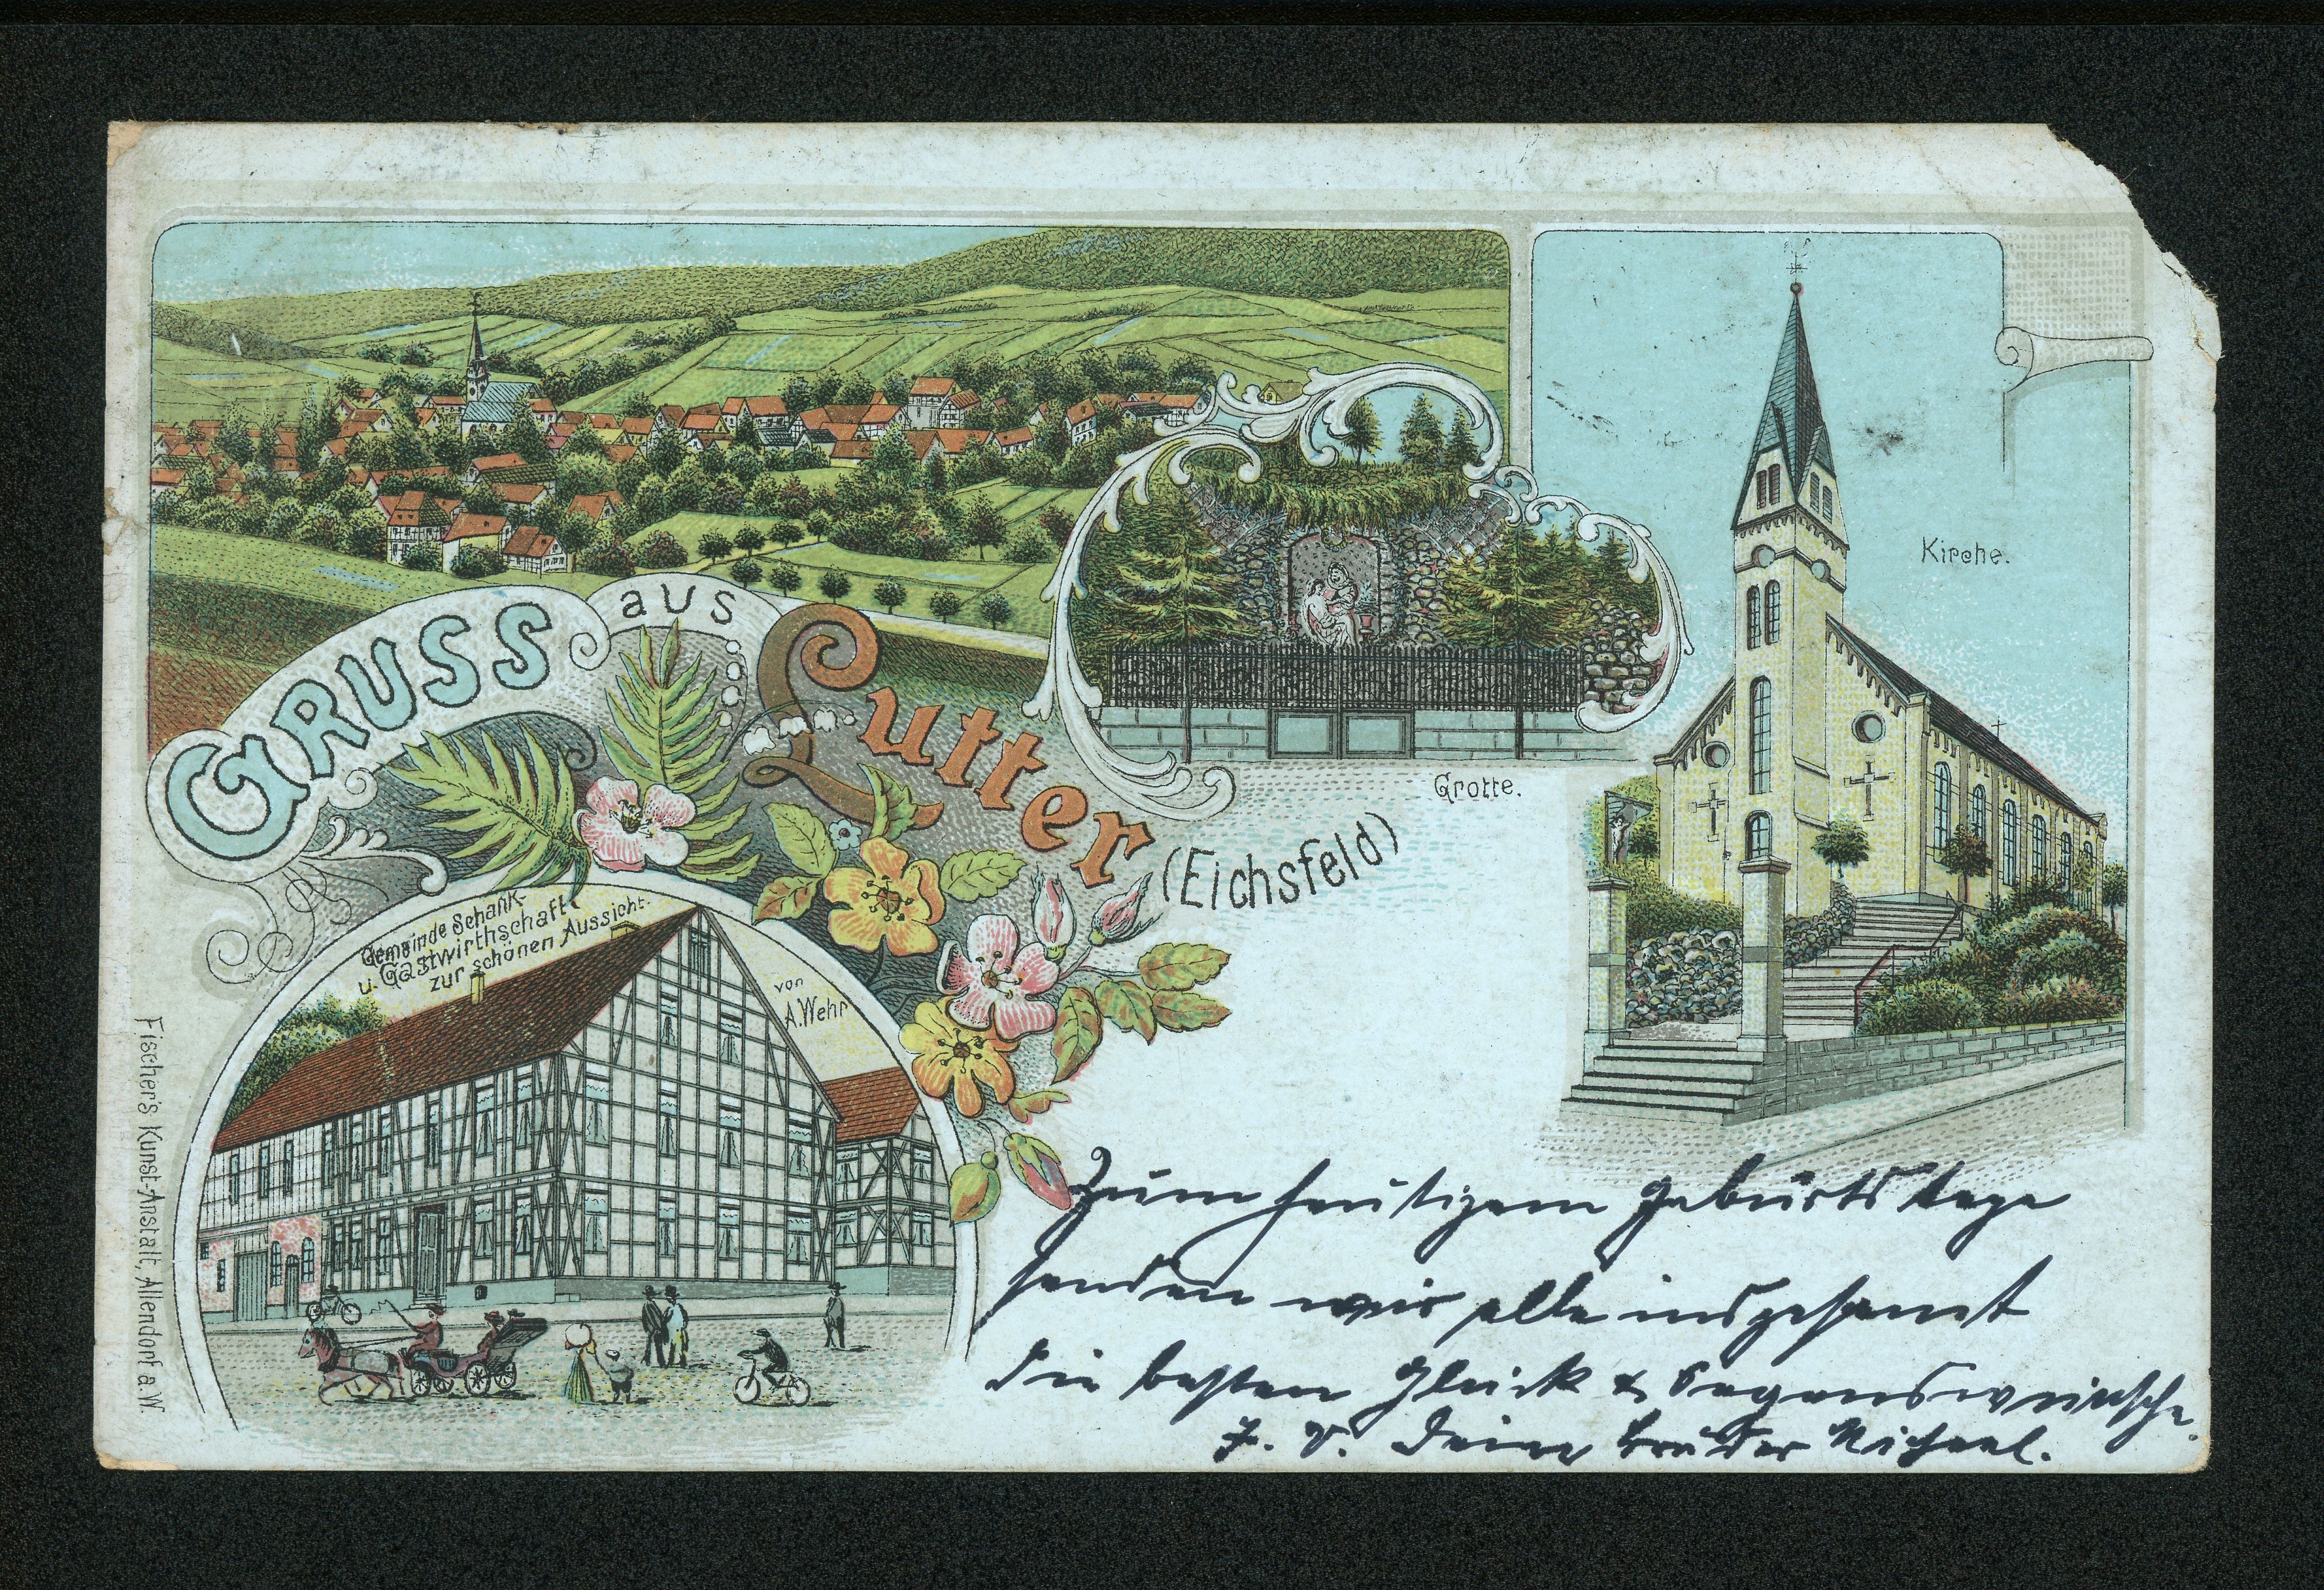 GRUSS aus Lutter
(Eichsfeld)
Kirche.
Grotte.
Gemeinde Schank-
u. Gastwirthschaft
zur schönen Aussicht.
von
A. Wehr
Fischer's Kunst-Anstalt, Allendorf a.W.
Zum heutigem Geburtstage
senden wir alle insgesamt
die besten Glück & Segenswünsche.
Deine Bruder Michael.